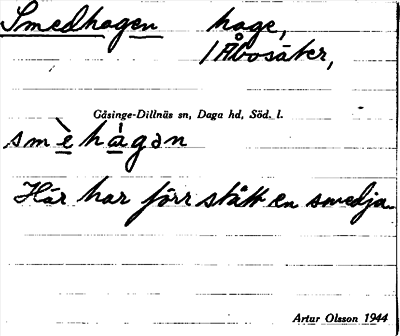 Smedhagen hage,
/Åbosäter,
Gåsinge-Dillnäs sn, Daga hd, Söd. l.
smè̱hà̱gən
Här har förr stått en smedja.
Artur Olsson 1944